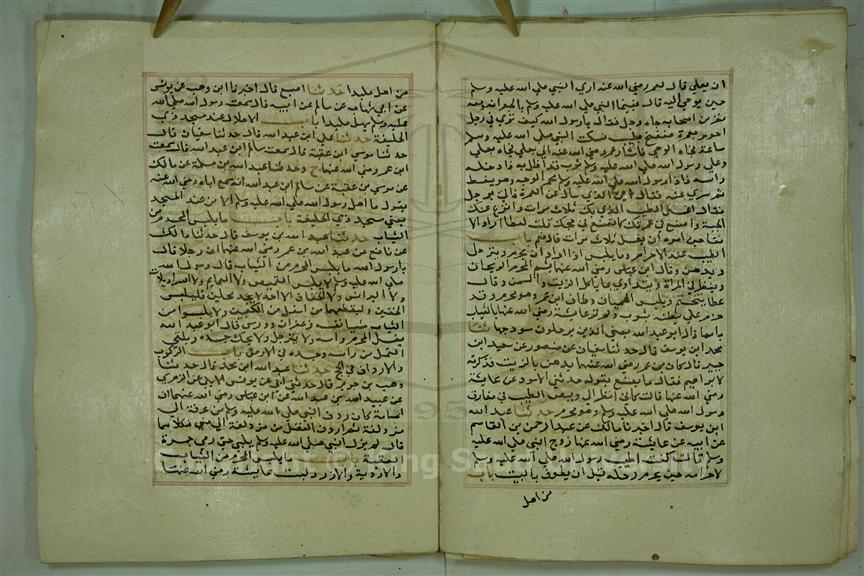 ان يعلي قال لعمر رضي الله عنه اري النبي صلي الله عليه وسلم
حين يوحي اليه قال فبينما النبي صلي الله عليه وسلم بالجعرانة ومعه
نفر من اصحابه جاء رجل فقال يا رسول الله كيف تري في رجل
احرم بعمرة متضمخ بطيب فسكت النبي صلي الله عليه وسلم
ساعة فجاه الوحي فاشار عمر رضي الله عنه الي يعلي فجاء يعلي
وعلي رسول الله صلي الله عليه وسلم ثوب قد اظل به فادخل
راسه فاذا رسول الله صلي الله عليه وسلم محمر الوجه وهو يغط
ثم سري عنه فقال اين الذي سال عن العمرة فاتي برجل
فقال اغسل الطيب الذي بك ثلاث مرات وانزع عنك
الجبة واصنع في عمرتك كما تصنع في حجك قلت لعطا اراد الا
نقا حين امره ان يغسل ثلاث مرات قال نعم باب
الطيب عند الاحرام وما يلبس اذا اراد ان يحرم ويترجل
ويدهن وقال ابن عباس رضي الله عنهما يشم المحرم الريحان
وينظر في المراة ويتداوي بما ياكل الزيت والسمن وقال
عطا يتختم ويلبس الهميان وطاف ابن عمر وهو محرم وقد
حزم علي بطنه بثوب ولم تر عايشة رضي الله عنها بالتبان
باسا قال ابو عبد الله يعني الذين يرحلون هودجها ثنا
محمد ابن يوسف قال حدثنا سفيان عن منصور عن سعيد ابن
جبير قال كان ابن عمر رضي الله عنهما يدهن بالزيت فذكرته
لابراهيم فقال ما تصنع بقوله حدثني الاسود عن عايشة
رضي الله عنها قالت كاني انظر الي وبيص الطيب في مفارق
رسول الله صلي الله عليه وسلم وهو محرم حدثنا عبد الله
ابن يوسف قال اخبرنا مالك عن عبد الرحمن بن القاسم
عن ابيه عن عايشة رضي الله عنها زوج النبي صلي الله عليه
وسلم قالت كنت اطيب رسول الله صلي الله عليه وسلم
لاحرامه حين يحرم ولحله قبل ان يطوف بالبيت باب
من اهل
من اهل ملبدا حدثنا اصبغ قال اخبرنا ابن وهب عن يونس
عن ابن شهاب عن سالم عن ابيه قال سمعت رسول الله صلي الله
عليه وسلم يهل ملبدا باب الاهلال عند مسجد ذي
الحليفة حدثنا علي ابن عبد الله قال حدثنا سفيان قال
حدثنا موسي ابن عقبة قال سمعت سالم ابن عبد الله قال سمعت
ابن عمر رضي الله عنهما ح وحدثنا عبد الله بن مسلمة عن مالك
عن موسي بن عقبة عن سالم ابن عبد الله انه سمع اباه رضي الله عنه
يقول ما اهل رسول الله صلي الله عليه وسلم الا من عند المسجد
يعني مسجد ذي الحليفة باب ما يلبس المحرم من
الثياب حدثنا عبد الله بن يوسف قال حدثنا مالك
عن نافع عن عبد الله بن عمر رضي الله عنهما ان رجلا قال
يا رسول الله ما يلبس المحرم من الثياب قال رسول الله
صلي الله عليه وسلم لا يلبس القميص ولا العمايم ولا السراويلات
ولا البرانس ولا الخفاف الا احد لا يجد نعلين فليلبس
الخفين وليقطعهما من اسفل من الكعبين ولا يلبسوا من
الثياب شيا مسه زعفران او ورس قال ابو عبد الله
يغسل المحرم راسه ولا يترجل ولا يحك جسده ويلقي
القمل من راسه وجسده في الارض باب الركوب
والارداف في الحج حدثنا عبد الله ابن محمد قال حدثنا
وهب بن جرير قال حدثني ابي عن يونس الايلي عن الزهري
عن عبيد الله بن عبد الله عن ابن عباس رضي الله عنهما ان
اسامة كان ردف النبي صلي الله عليه وسلم من عرفة الي
مزدلفة ثم اردف الفضل من مزدلفة الي مني فكلاهما
قال لم يزل النبي صلي الله عليه وسلم يلبي حتي رمي جمرة
العقبة باب ما يلبس المحرم من الثياب
والاردية والازر ولبست عايشة رضي الله عنها